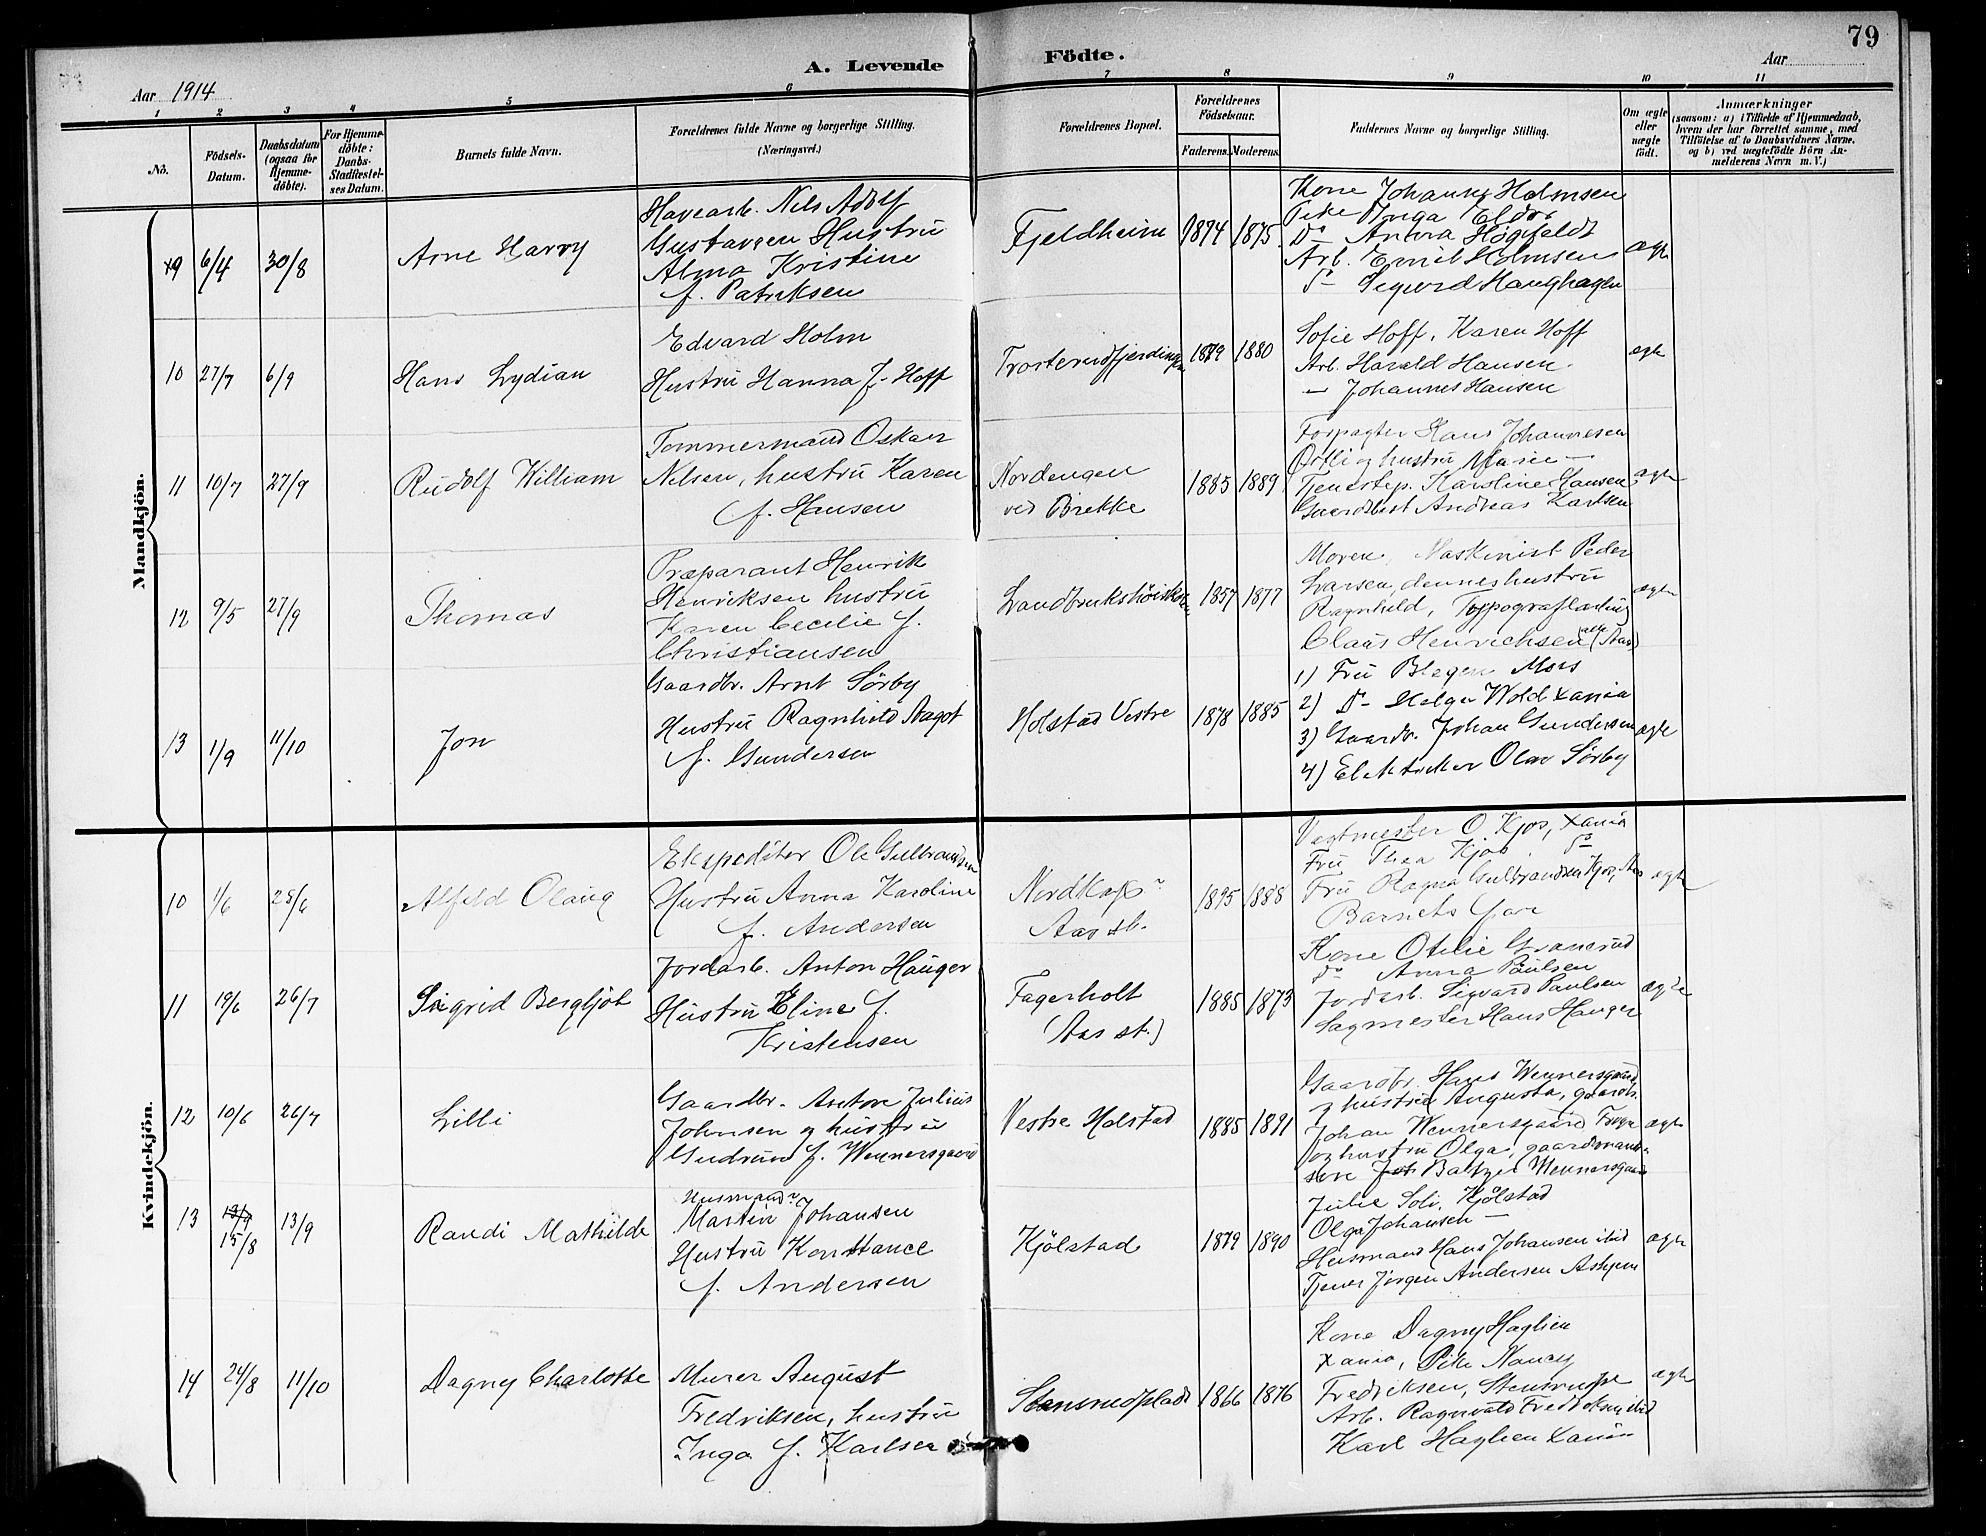 79
A. Levende Födte.
Aar 1914
Aar
1 2 3 4 5 6 7 8 9 10 11
No.
Födsels-Datum.
Daabsdatum (ogsaa for hjemmedöbte).
For Hjemmedöbte: Daabs-Stadfæstelses Datum.
Barnets fulde Navn.
Forældrenes fulde Navne og borgerlige Stilling. (Næringsvei.)
Forældrenes Bopæl.
Forældrenes Födselsaar.
Faderens. Moderens.
Faddernes Navne og borgerlige Stilling.
Om ægte eller uægte födt.
Anmærkninger
(saasom: a) i Tilfælde af Hjemmedaab, hvem der har forrettet samme, med Tilföielse af to Daabsvidners Navne, og b) ved uægtefödte Börn Anmelderens Nevn m. V.)
Mandkjön.
9 6/4 30/8
Arne Harry
Havearb. Nils Adolf
Gustavsen Hustru
Alma Kristine
f. Patriksen
Fjeldheim
1874 1875
Kone Johanne Holmsen
Pike Inga
Do Anna Høgfeldt
Arb. Emil Holmsen
Do Sigurd Haughagen
ægte
10 27/7 6/9
Hans Lydian
Edvard Holm
Hustru Hanna f. Hoff
Trosterudfjerdingen
1879 1880
Sofie Hoff, Karen Hoff
Arb. Harald Hansen
— Johannes Hansen
ægte
11 10/7 27/9
Rudolf William
Tømmermand Oskar
Nilsen, hustru Karen
f. Hansen
Nordengen
ved Brekke
1885 1889
Forpagter Hans Johannesen
Østli og hustru Marie —
Tjenestep. Karoline Hansen
Gaardbest Andreas Karlsen
ægte
12 9/5 27/9
Thomas
Præparant Henrik
Henriksen hustru
Karen Cecilie f.
Christiansen
Landbrukshøiskolen
1857 1877
Moren, Maskinist Peder
Larsen, dennes hustru
Ragnhild, Typograflærling
Claus Henrichsen (alle Aas)
ægte
13 1/9 11/10
Jon
Gaardbr. Arnt Sörby
Hustru Ragnhild Aagot
f. Gundersen
Holstad Vestre
1878 1885
1) Fru Blegen Moss
2) Do Helga Wold Xania
3) Gaardbr. Johan Gundersen
4) Elektriker Olav Sörby
ægte
Kvindekjön.
10 1/6 28/6
Alfild Olaug
Ekspeditør Ole Gulbrandsen
Hustru Anna Karoline
f. Andersen
Nordkap
Aas st.
1895 1888
Vegtmester O. Kjos, Xania
Fru Thea Kjos Do
Fru Ragna Gulbrandsen Kjos, Aas
Barnets Far
ægte
11 19/6 26/7
Sigrid Bergljot
Jordarb. Anton Hauger
Hustru Eline f.
Kristensen
Fagerholt
(Aas st.)
1885 1873
Kone Otilie Granerud
Do Anna Paulsen
Jordarb. Sigvard Paulsen
Sagmester Hans Hauger
ægte
12 10/6 26/7
Lilli
Gaardbr. Anton Julius
Johnsen og hustru
Gudrun f. Wennersgaard
Vestre Holstad
1885 1891
Gaardbr. Hans Wennersgaard
og hustru Augusta, gaardb.
Johan Wennersgaard
og hustru Olga, gaardmands-
søn Baltzer Wennersgaard
ægte
13 13/9 15/8 13/9
Randi Mathilde
Husmand
Martin Johansen
Hustru Konstance
f. Andersen
Kjölstad
1879 1890
Julie Kjölstad
Olga Johansen —
Husmand Hans Johansen ibid
Tjener Jörgen Andersen Askjum
ægte
14 24/8 11/10
Dagny Charlotte
Murer August
Fredriksen, hustru
Inga f. Karlsen
Stensrudplads
1866 1876
Kone Dagny Haglien
Xania, Pike Nancy
Fredriksen, Stensrudpl
Arb. Ragnvald Fredriksen, ibid
Karl Haglien Xania
ægte